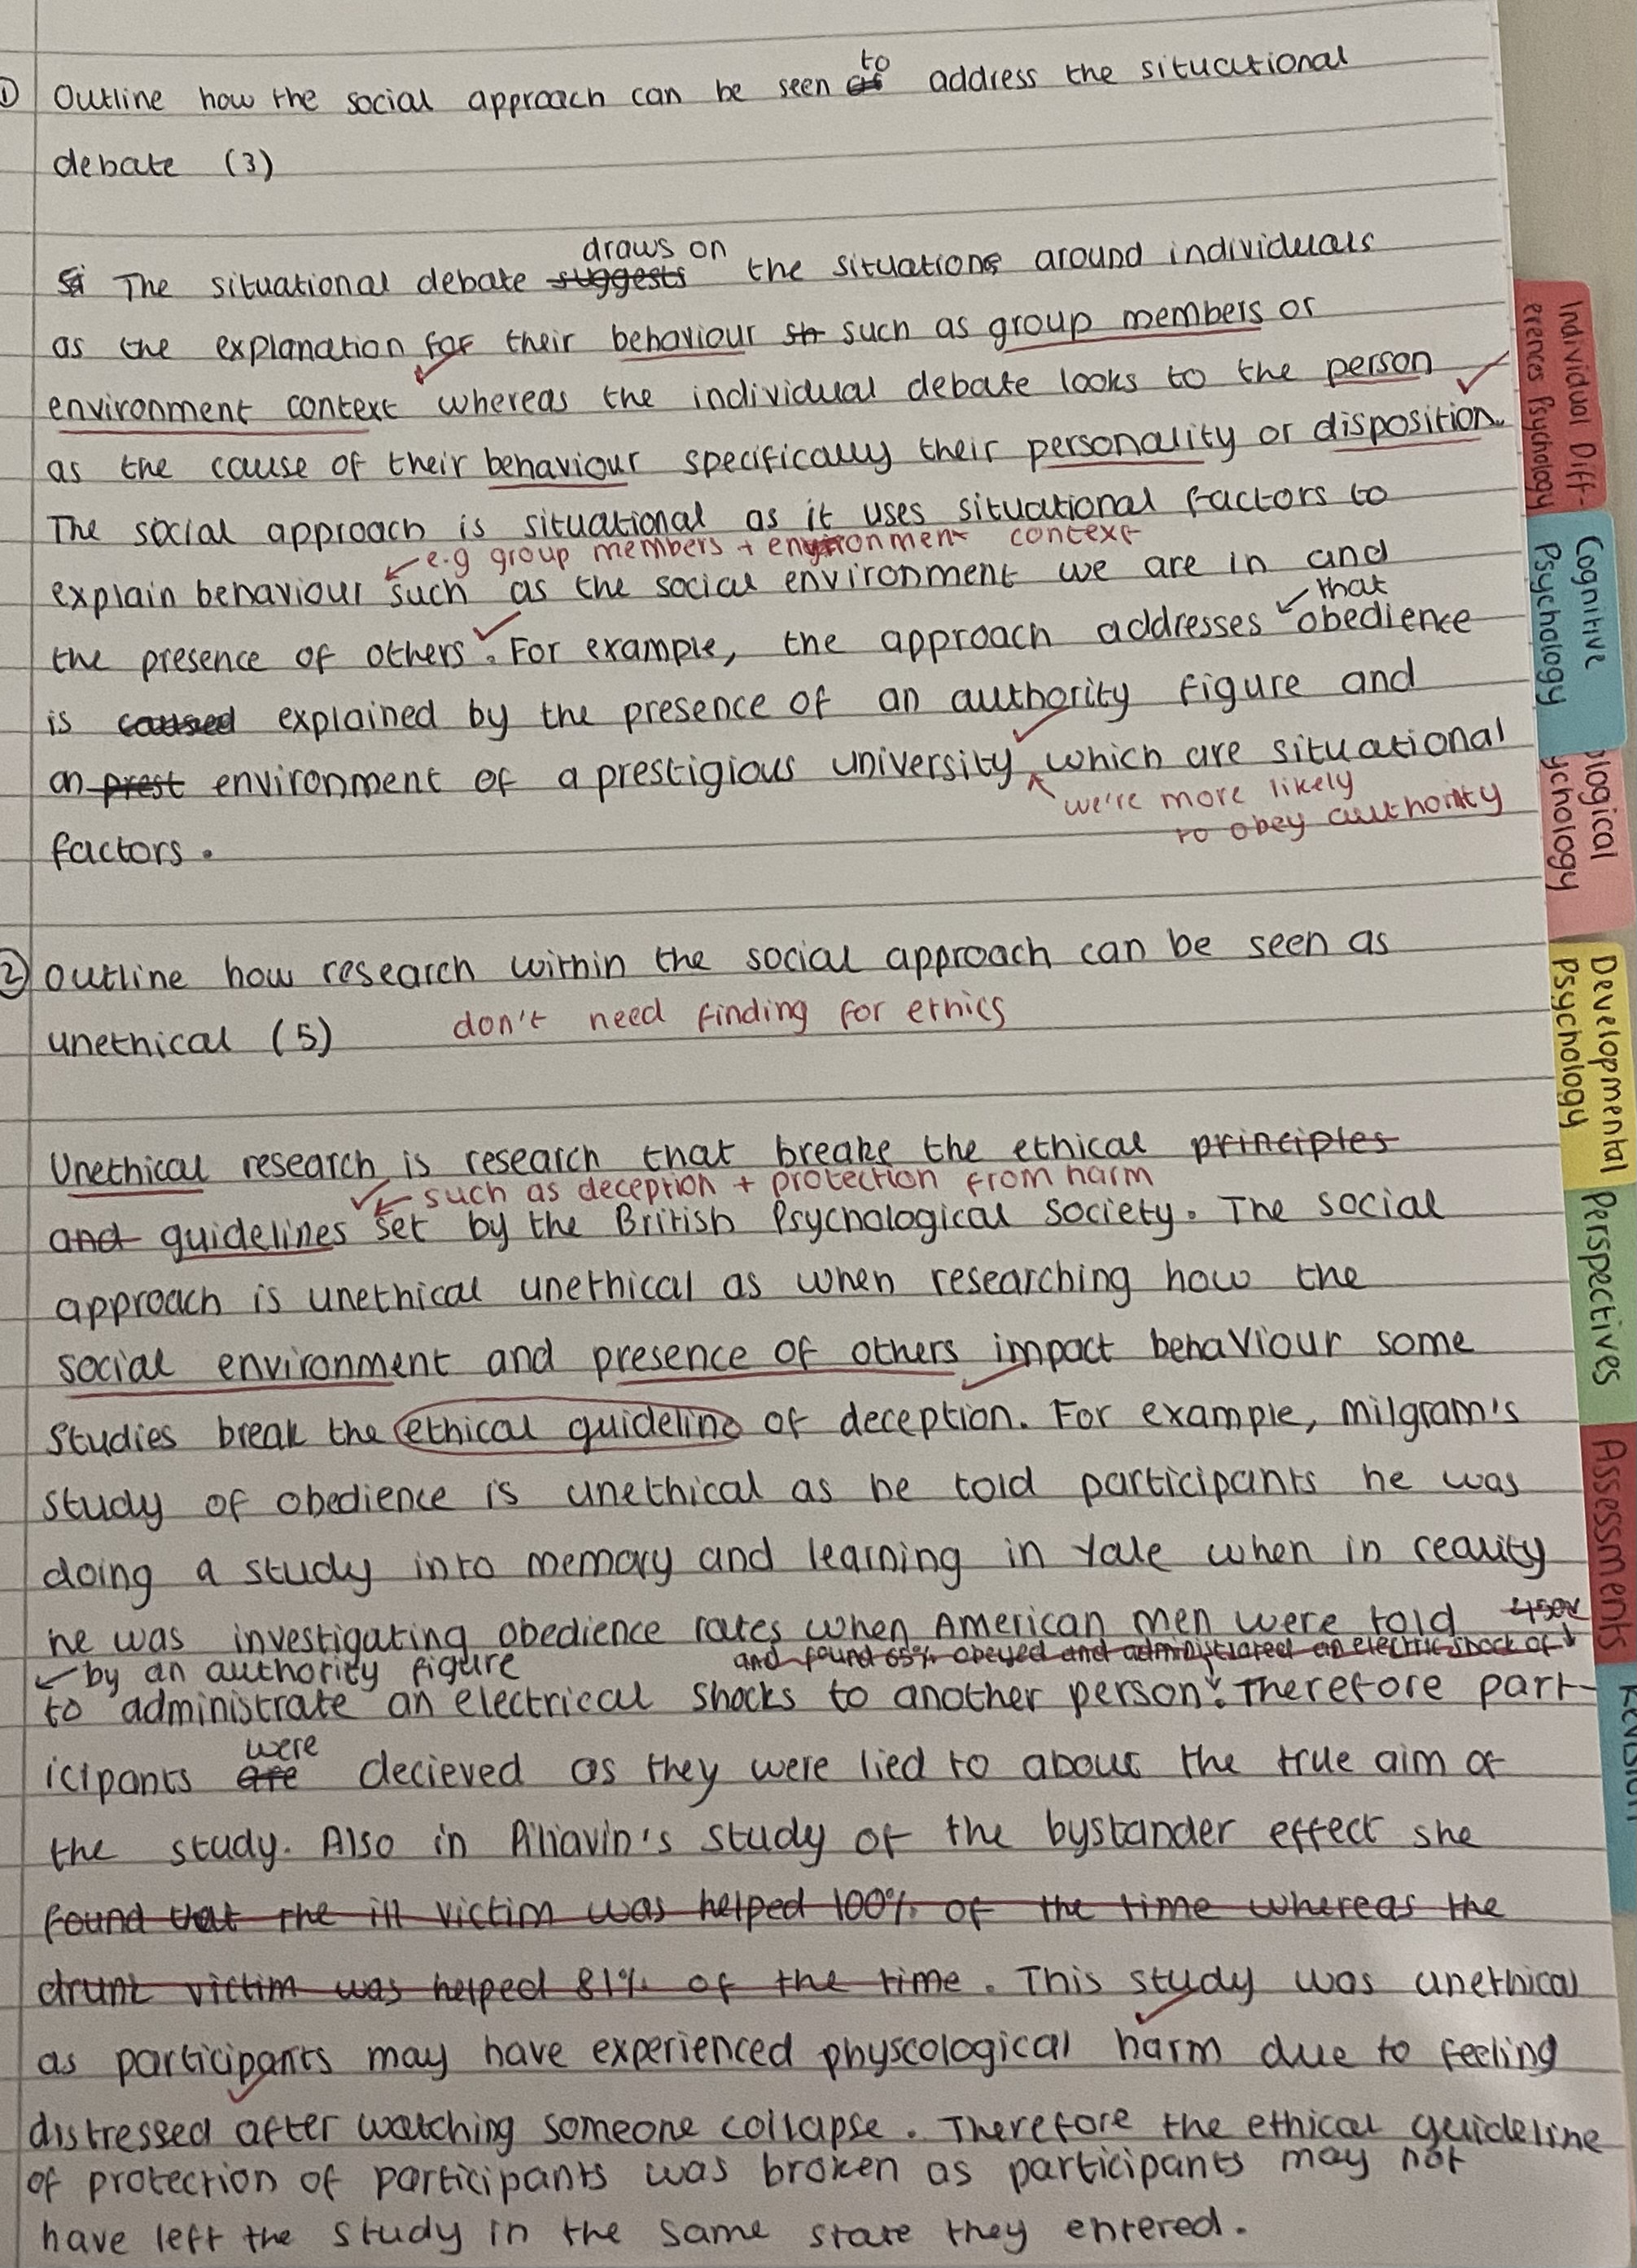 ① Outline how the social approach can be seen as to address the situational
debate (3)
Si The situational debate suggests draws on the situations around individuals
as the explanation for their behaviour sh such as group members or
environment context whereas the individual debate looks to the person
as the cause of their behaviour specifically their personality or disposition.
The social approach is situational as it uses situational factors to
e.g group members + environment context
explain behaviour such as the social environment we are in and
that
the presence of others. For example, the approach addresses obedience
is caused explained by the presence of an authority figure and
an prest environment of a prestigious university which are situational
we're more likely
to obey authority
factors.
② Outline how research within the social approach can be seen as
unethical (5) don't need finding for ethics
Unethical research is research that breake the ethical principles
such as deception + protection from harm
and guidelines set by the British Psychological Society. The social
approach is unethical unethical as when researching how the
social environment and presence of others impact behaviour some
studies break the ethical guideline of deception. For example, milgram's
study of obedience is unethical as he told participants he was
doing a study into memory and learning in Yale when in reality
he was investigating obedience rates when American men were told 450v
by an authority figure and found 65% obeyed and administrated an electric shock of
to administrate an electrical shocks to another person. Therefore part-
icipants are were decieved as they were lied to about the true aim of
the study. Also in Piliavin's study of the bystander effect she
found that the ill victim was helped 100% of the time whereas the
drunt victim was helped 81% of the time. This study was unethical
as participants may have experienced physcological harm due to feeling
distressed after watching someone collapse. Therefore the ethical guideline
of protection of participants was broken as participants may not
have left the study in the same state they entered.
Individual Diff-
erences Psychology
Cognitive
Psychology
ological
ychology
Developmental
Psychology
Perspectives
Assessments
Revision